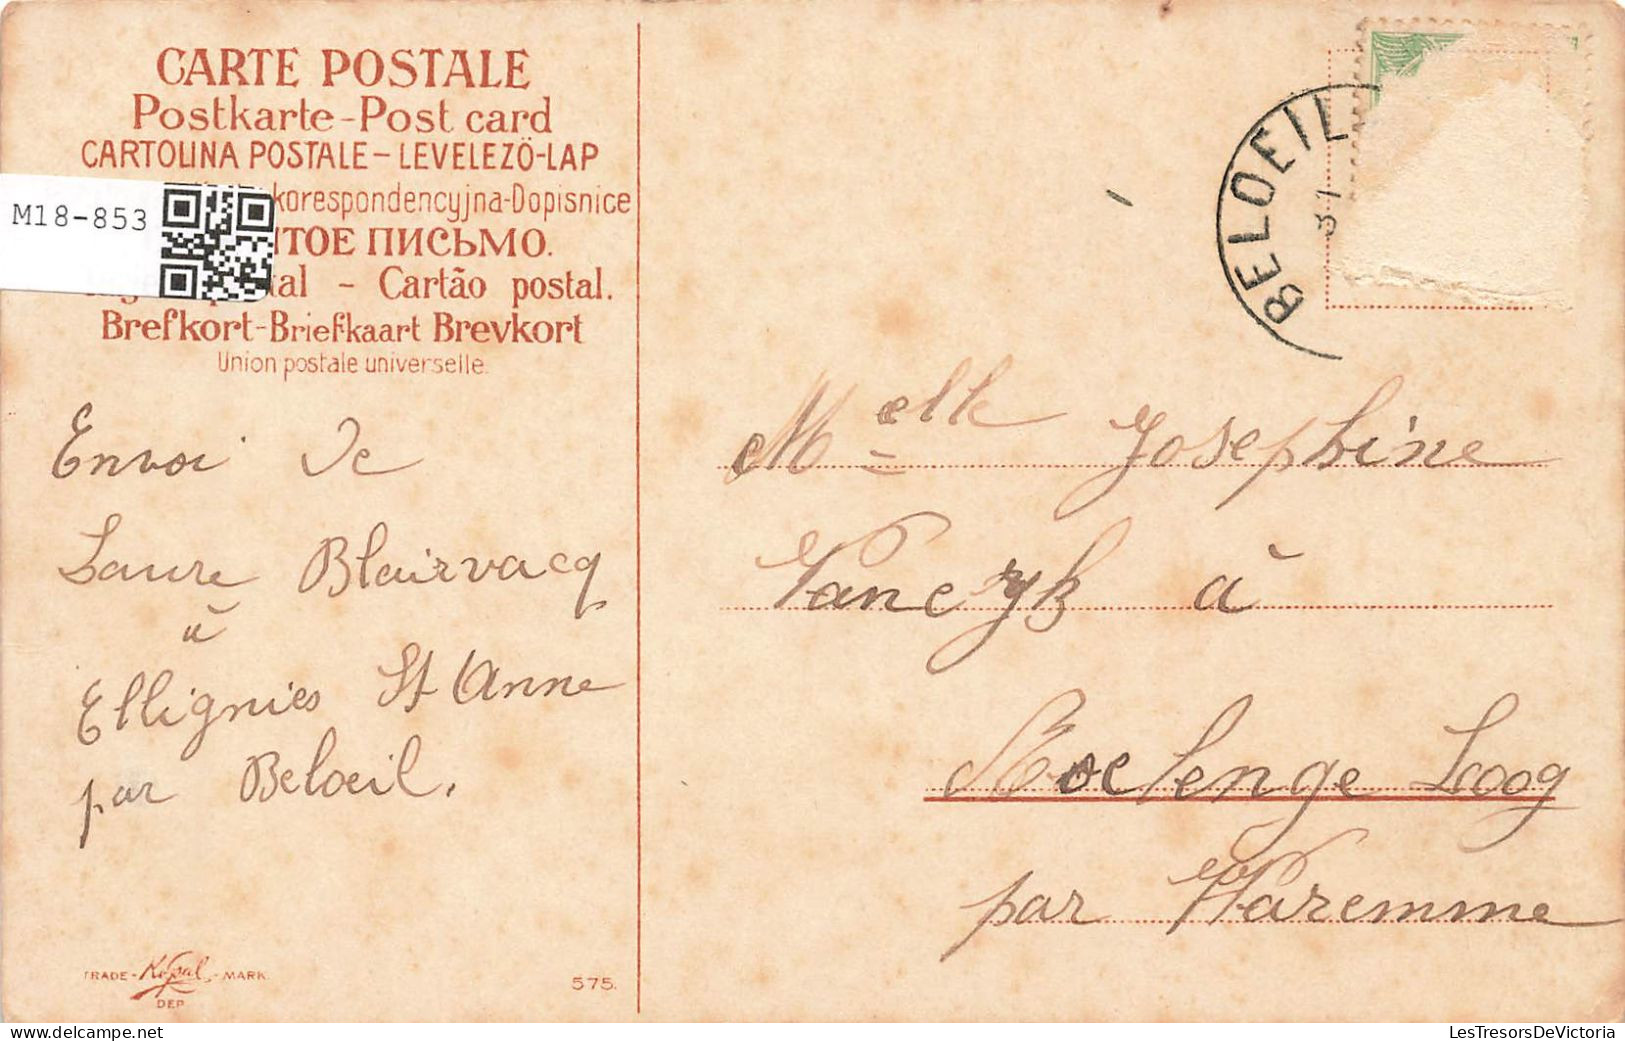 CARTE POSTALE
Postkarte-Post card
CARTOLINA POSTALE-LEVELEZÖ-LAP
korespondencyjna-Dopisnice
M18-853
ПИСЬМО.
- Cartão postal.
Brefkort-Briefkaart Brevkort
Union postale universelle.
BELOEIL
31
Envoi de
Laure Blairvacq
à
Ellignies St Anne
par Beloeil.
Melle Josephine
à
Roclenge Looog
par Waremme
TRADE-KoPal-MARK
DEP.
575.
LesTresorsDeVictoria